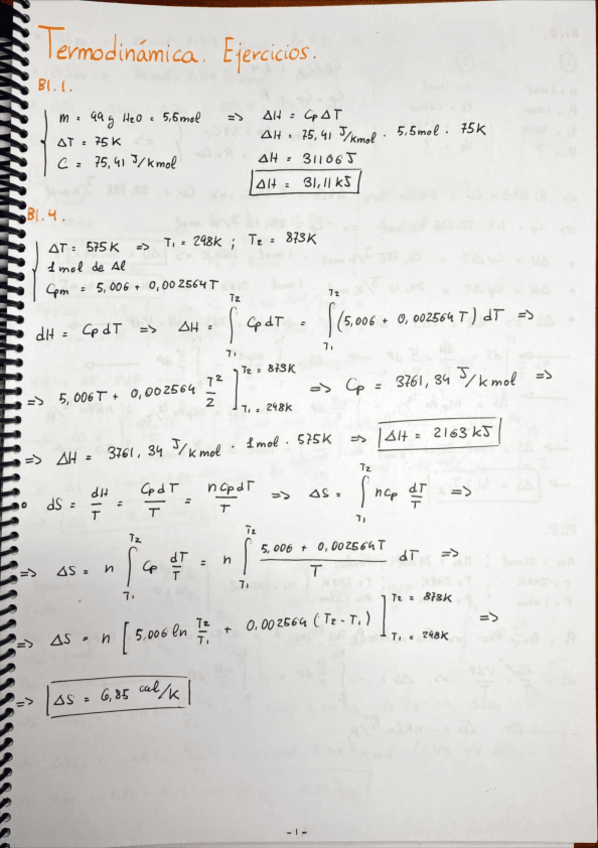 Termodinámica. Ejercicios.
B1.1.
m = 99g H2O = 5,5mol => ΔH = Cp ΔT
ΔT = 75K ΔH = 75,41 J/kmol · 5,5mol · 75K
C = 75,41 J/kmol ΔH = 31106J
ΔH = 31,11kJ
B1.4.
ΔT = 575K => T1 = 298K ; T2 = 873K
1mol de Al
Cpm = 5,006 + 0,002564T
dH = CpdT => ΔH = ∫T1T2 CpdT = ∫T1T2 (5,006 + 0,002564T) dT =>
=> 5,006T + 0,002564 T²/2 ] T2 = 873K T1 = 298K => Cp = 3761,34 J/kmol =>
=> ΔH = 3761,34 J/kmol · 1mol · 575K => ΔH = 2163 kJ
o dS = dH/T = CpdT/T = nCpdT/T => ΔS = ∫T1T2 nCp dT/T =>
=> ΔS = n ∫T1T2 Cp dT/T = n ∫T1T2 5,006 + 0,002564T/T dT =>
=> ΔS = n [ 5,006 ln T2/T1 + 0,002564 (T2 - T1) ] T2 = 873K T1 = 298K =>
=> ΔS = 6,85 cal/K
-1-